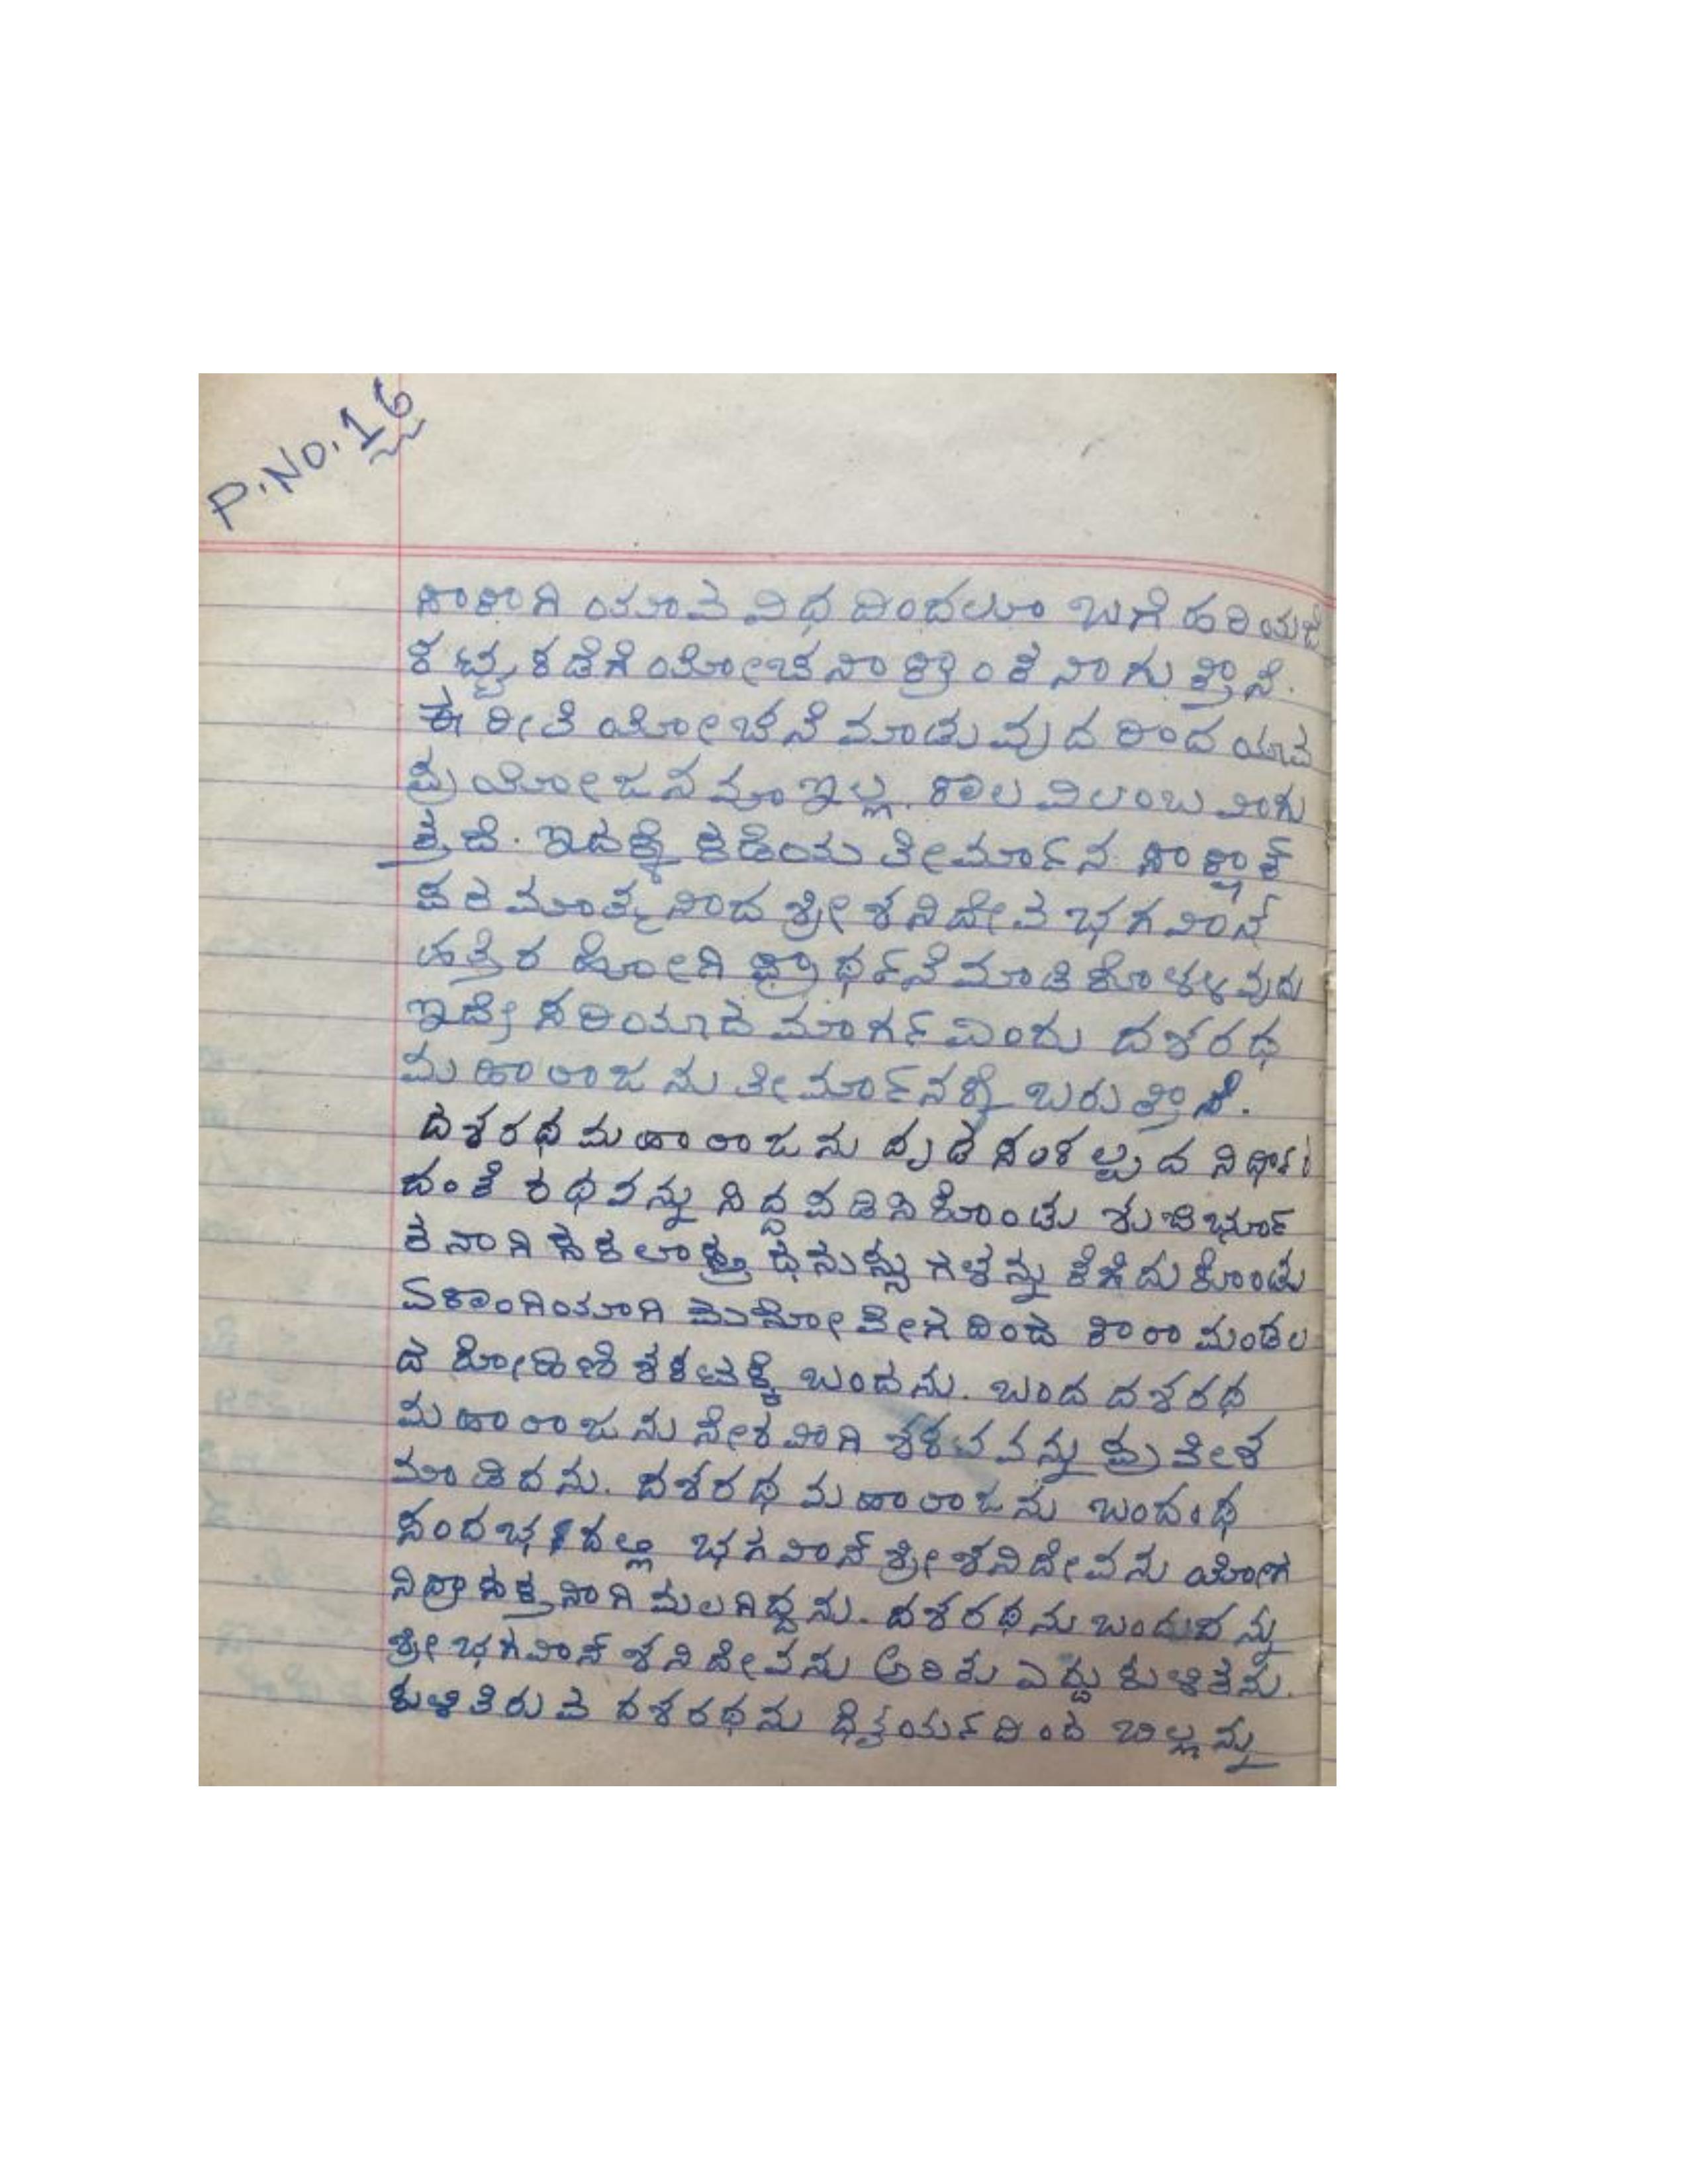 P.No.16
ಸಾಕಾಗಿ ಯಾವ ವಿಧ ದಿಂದಲೂ ಬಗೆ ಹರಿಯದೆ
ಕಟ್ಟ ಕಡೆಗೆ ಯೋಚನಾಕ್ರಾಂತನಾಗುತ್ತಾನೆ.
ಈ ರೀತಿ ಯೋಚನೆ ಮಾಡುವುದ ರಿಂದ ಯಾವ
ಪ್ರಯೋಜನವೂ ಇಲ್ಲ. ಕಾಲ ವಿಲಂಬ ವಾಗು
ತ್ತದೆ. ಇದಕ್ಕೆ ಕಡೆಯ ತೀರ್ಮಾನ ಸಾಕ್ಷಾತ್
ಪರಮಾತ್ಮನಾದ ಶ್ರೀ ಶನಿದೇವ ಭಗವಾನ್
ಹತ್ತಿರ ಹೋಗಿ ಪ್ರಾರ್ಥನೆ ಮಾಡಿ ಕೊಳಳವುದು
ಇದೇ ಸರಿಯಾದ ಮಾರ್ಗ ವೆಂದು ದಶರಥ
ಮಹಾರಾಜನು ತೀರ್ಮಾನಕ್ಕೆ ಬರುತ್ತಾನೆ.
ದಶರಥ ಮಹಾರಾಜನು ದೃಢ ಸಂಕಲ್ಪದ ನಿರ್ಧಾರ
ದಂತೆ ರಥವನ್ನು ಸಿದ್ದ ಪಡಿಸಿಕೊಂಡು ಶುಚಿರ್ಭೂ
ತನಾಗಿ ಸಕಲಾಸ್ತ್ರ ಧನುಸ್ಸು ಗಳನ್ನು ತೆಗೆದುಕೊಂಡು
ಏಕಾಂಗಿಯಾಗಿ ಮನೋವೇಗ ದಿಂದ ತಾರಾ ಮಂಡಲ
ದ ರೋಹಿಣಿ ಶಕಟಕ್ಕೆ ಬಂದನು. ಬಂದ ದಶರಥ
ಮಹಾರಾಜನು ನೇರವಾಗಿ ಶಕಟವನ್ನು ಪ್ರವೇಶ
ಮಾಡಿದನು. ದಶರಥ ಮಹಾರಾಜನು ಬಂದಂಥ
ಸಂದರ್ಭದಲ್ಲಿ ಭಗವಾನ್ ಶ್ರೀ ಶನಿದೇವನು ಯೋಗ
ನಿದ್ರಾಸಕ್ತನಾಗಿ ಮಲಗಿದ್ದನು. ದಶರಥನು ಬಂದುದನ್ನು
ಶ್ರೀ ಭಗವಾನ್ ಶನಿದೇವನು ಅರಿತು ಎದ್ದು ಕುಳಿತನು.
ಕುಳಿತಿರುವ ದಶರಥನು ಧೈರ್ಯದಿಂದ ಬಿಲ್ಲನ್ನು